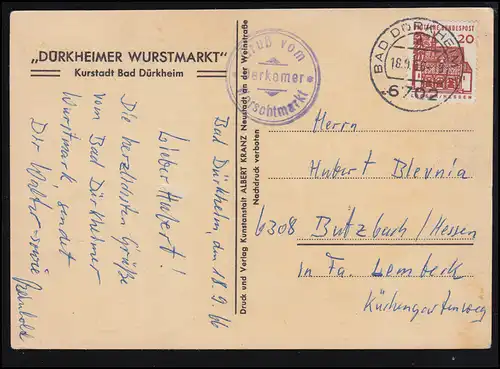 „DÜRKHEIMER WURSTMARKT"
Kurstadt Bad Dürkheim
Bad Dürkheim, den 18.9.66
Lieber Hubert!
Die herzlichsten Grüße
vom Bad Dürkheimer
Wurstmark, sendet
Dir Walter sowie
Reinhold
Druck und Verlag Kunstanstalt ALBERT KRANZ Neustadt an der Weinstraße
Nachdruck verboten
Gruß vom
BAD DÜRKHEIM
18.9.
6702
DEUTSCHE BUNDESPOST
20
HESSEN
Herrn
Hubert
6308 Butzbach/Hessen
In Fa. Lembeck